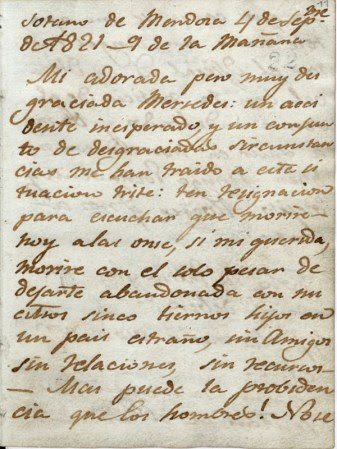 Sotano de Mendosa 4 de Sepre
de 1821 – 9 de la Mañana
Mi adorada pero muy des
graciada Mersedes: un acci
dente inesperado, y un conjun
to de desgraciadas sircunstan
cias me han traido a esta si
tuacion triste: ten resignacion
para escuchar que morire
hoy a las onse, si mi querida,
morire con el solo pesar de
dejarte abandonada con nu
estros sinco tiernos hijos en
un pais estraño, sin Amigos
sin relaciones, sin recursos –
— Mas puede la probiden
cia que los hombres! No se